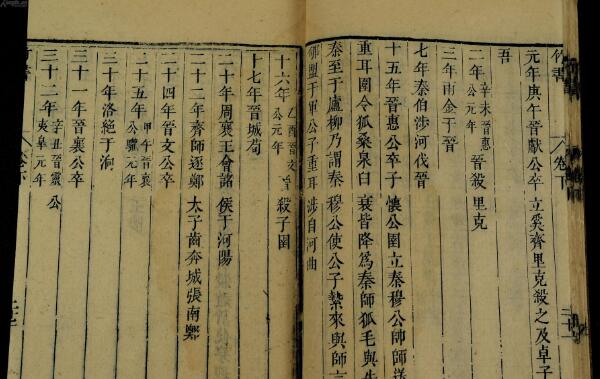 竹書 卷下
元年庚午晉獻公卒立奚齊里克殺之及卓子
吾
二年辛未晉惠公元年晉殺里克
三年雨金于晉
七年秦伯涉河伐晉
十五年晉惠公卒子懷公圉立秦穆公帥師送
重耳圍令狐桑泉臼衰皆降爲秦師狐毛與先
秦至于廬柳乃謂秦穆公使公子縶來與師言
郇盟于軍公子重耳涉自河曲
十六年乙酉晉文公元年殺子圉
十七年晉城荀
二十年周襄王會諸侯于河陽
二十二年齊師逐鄭太子齒奔城張南鄭
二十四年晉文公卒
二十五年甲午晉襄公驩元年
三十年洛絕于泂
三十一年晉襄公卒
三十二年辛丑晉靈公夷皋元年